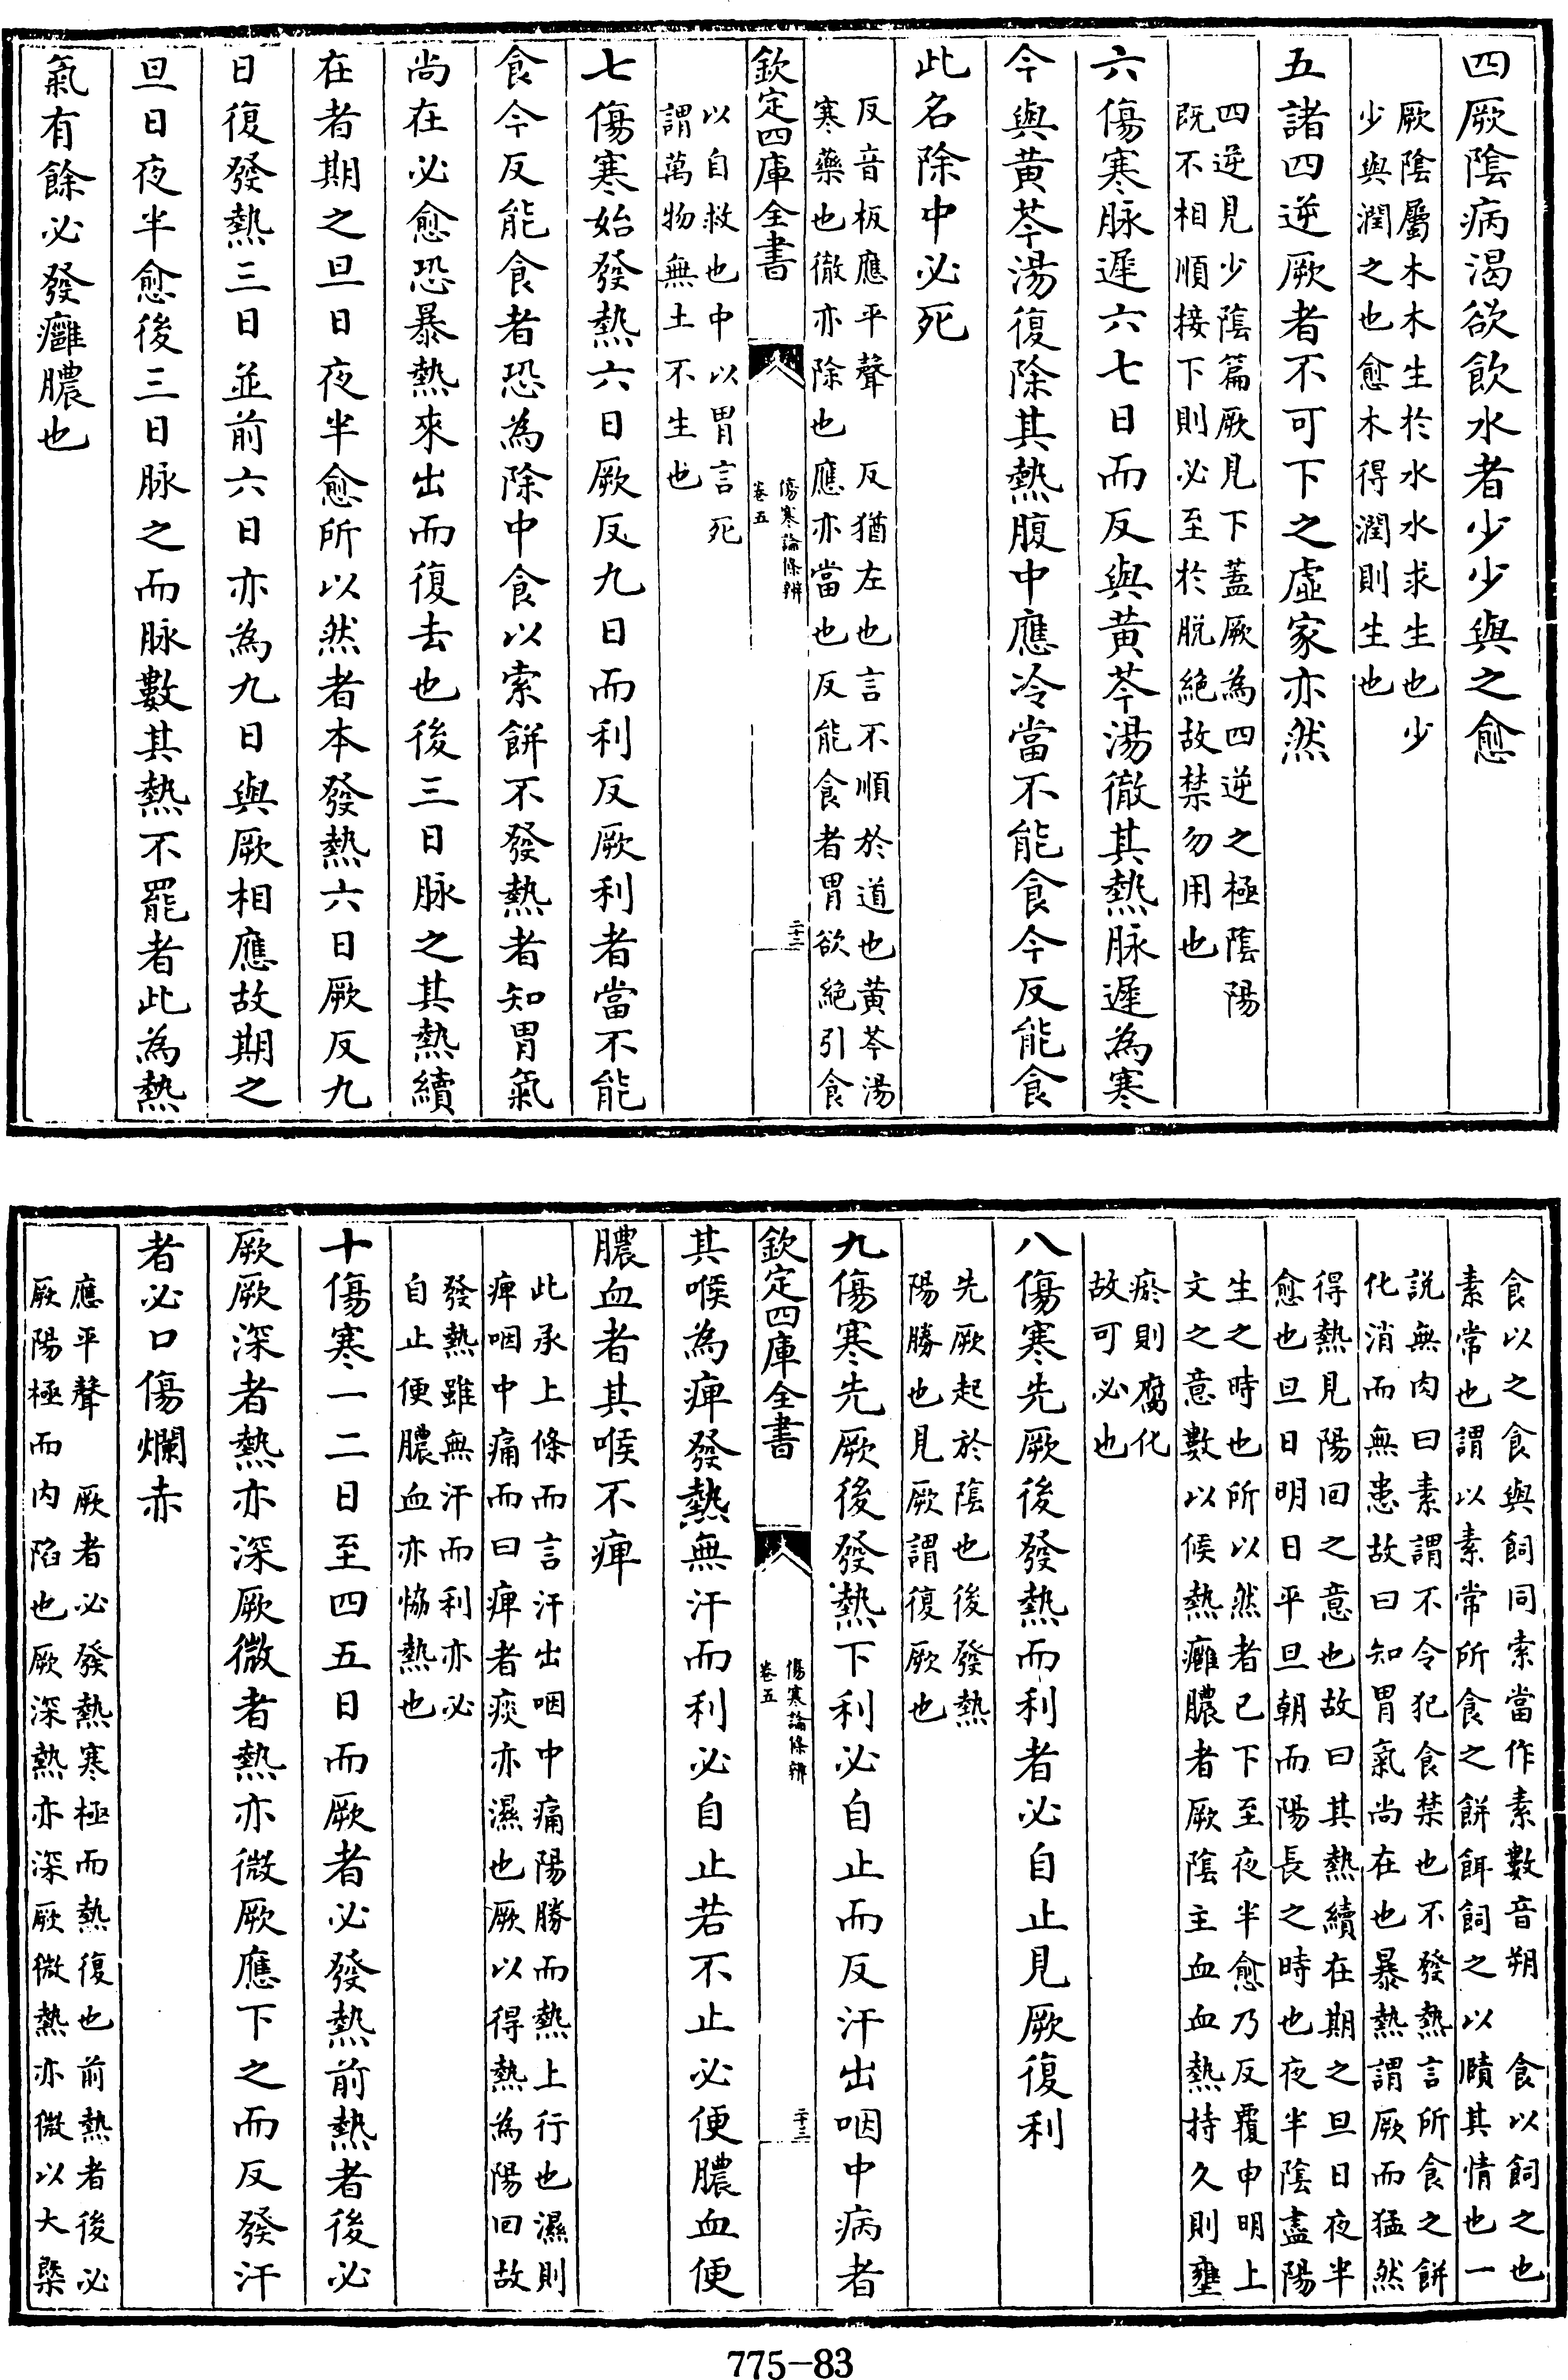 四厥陰病渴欲飲水者少少與之愈
厥陰屬木木生於水水求生也少
少與潤之也愈木得潤則生也
五諸四逆厥者不可下之虛家亦然
四逆見少陰篇厥見下蓋厥為四逆之極陰陽
既不相順接下則必至於脫絕故禁勿用也
六傷寒脉遲六七日而反與黄芩湯徹其熱脉遲為寒
今與黄芩湯復除其熱腹中應冷當不能食今反能食
此名除中必死
反音板應平聲 反猶左也言不順於道也黄芩湯
寒藥也徹亦除也 應亦當也反能食者胃欲絕引食
欽定四庫全書
傷寒論條辨
卷五
二十二
以自救也中以胃言死
謂萬物無土不生也
七傷寒始發熱六日厥反九日而利反厥利者當不能
食今反能食者恐為除中食以索餅不發熱者知胃氣
尚在必愈恐暴熱來出而復去也後三日脉之其熱續
在者期之旦日夜半愈所以然者本發熱六日厥反九
日復發熱三日並前六日亦為九日與厥相應故期之
旦日夜半愈後三日脉之而脉數其熱不罷者此為熱
氣有餘必發癰膿也
食以之食與飼同索當作素數音朔 食以飼之也
素常也謂以素常所食之餅餌飼之以賾其情也一
說無肉曰素謂不令犯食禁也不發熱言所食之餅
化消而無患故曰知胃氣尚在也暴熱謂厥而猛然
得熱見陽回之意也故曰其熱續在期之旦日夜半
愈也旦日明日平旦朝而陽長之時也夜半陰盡陽
生之時也所以然者已下至夜半愈乃反覆申明上
文之意數以候熱癰膿者厥陰主血血熱持久則壅
瘀則腐化
故可必也
八傷寒先厥後發熱而利者必自止見厥復利
先厥起於陰也後發熱
陽勝也見厥謂復厥也
九傷寒先厥後發熱下利必自止而反汗出咽中病者
欽定四庫全書
傷寒論條辨
卷五
二十三
其喉為痺發熱無汗而利必自止若不止必便膿血便
膿血者其喉不痺
此承上條而言汗出咽中痛陽勝而熱上行也濕則
痺咽中痛而曰痺者痰亦濕也厥以得熱為陽回故
發熱雖無汗而利亦必
自止便膿血亦恊熱也
十傷寒一二日至四五日而厥者必發熱前熱者後必
厥厥深者熱亦深厥微者熱亦微厥應下之而反發汗
者必口傷爛赤
應平聲 厥者必發熱寒極而熱復也前熱者後必
厥陽極而内陷也厥深熱亦深厥微熱亦微以大槩
775-83